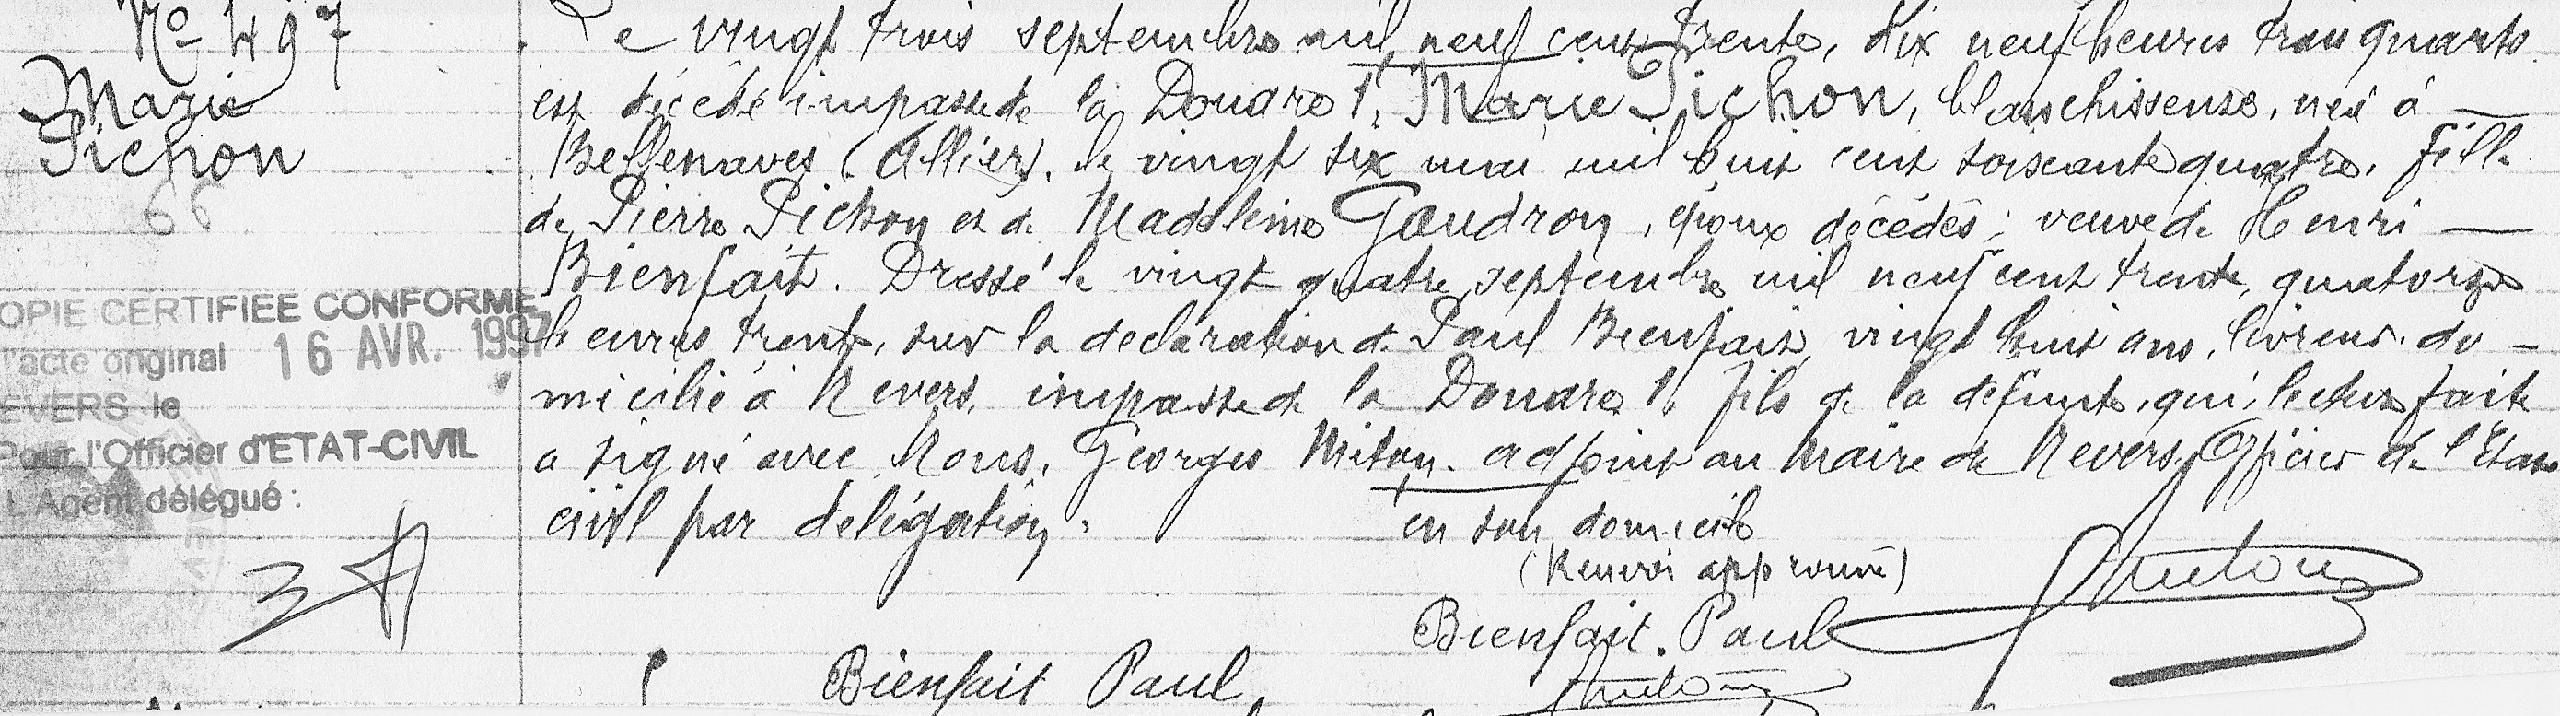 No 497
Marie
Pichon
66
Le vingt trois septembre mil neuf cent trente, dix neuf heures trois quarts
est décédée impasse de la Douare 1, Marie Pichon, blanchisseuse, née à
Bellenaves (Allier), le vingt six mai mil huit cent soixante quatre, fille
de Pierre Pichon et de Madeleine Gaudron, époux décédés; veuve de Henri
Bienfait. Dressé le vingt quatre septembre mil neuf cent trente, quatorze
heures trente, sur la déclaration de Paul Bienfait, vingt huit ans, livreur, do-
micilié à Nevers, impasse de la Douare 1, fils de la défunte, qui, lecture faite
a signé avec Nous, Georges adjoint au Maire de Nevers, Officier de l'Etat
civil par délégation.
en son domicile
(Renvoi approuvé)
Bienfait. Paul
Bienfait Paul
OPIE CERTIFIEE CONFORME
l'acte original 16 AVR. 1997
EVERS le
Pour l'Officier d'ETAT-CIVIL
L'Agent délégué :